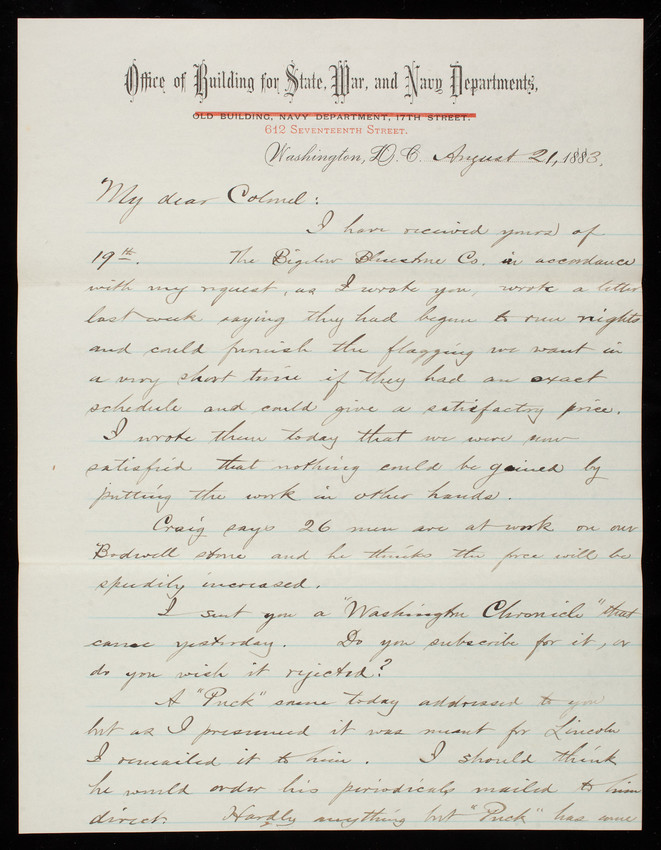 Office of Building for State, War, and Navy Departments,
OLD BUILDING, NAVY DEPARTMENT, 17TH STREET.
612 SEVENTEENTH STREET.
Washington, D.C. August 21, 1883.
My dear Colonel:
I have received yours of
19th. The Bigelow Bluestone Co. in accordance
with my request, as I wrote you, wrote a letter
last week saying they had begun to run nights
and could furnish the flagging we want in
a very short time if they had an exact
schedule and could give a satisfactory price.
I wrote them today that we were now
satisfied that nothing could be gained by
putting the work in other hands.
Craig says 26 men are at work on our
Bodwell stone and he thinks the force will be
speedily increased.
I sent you a "Washington Chronicle" that
came yesterday. Do you subscribe for it, or
do you wish it rejected?
A "Puck" came today addressed to you
but as I presumed it was meant for Lincoln
I remailed it to him. I should think
he would order his periodicals mailed to him
direct. Hardly anything but "Puck" has come